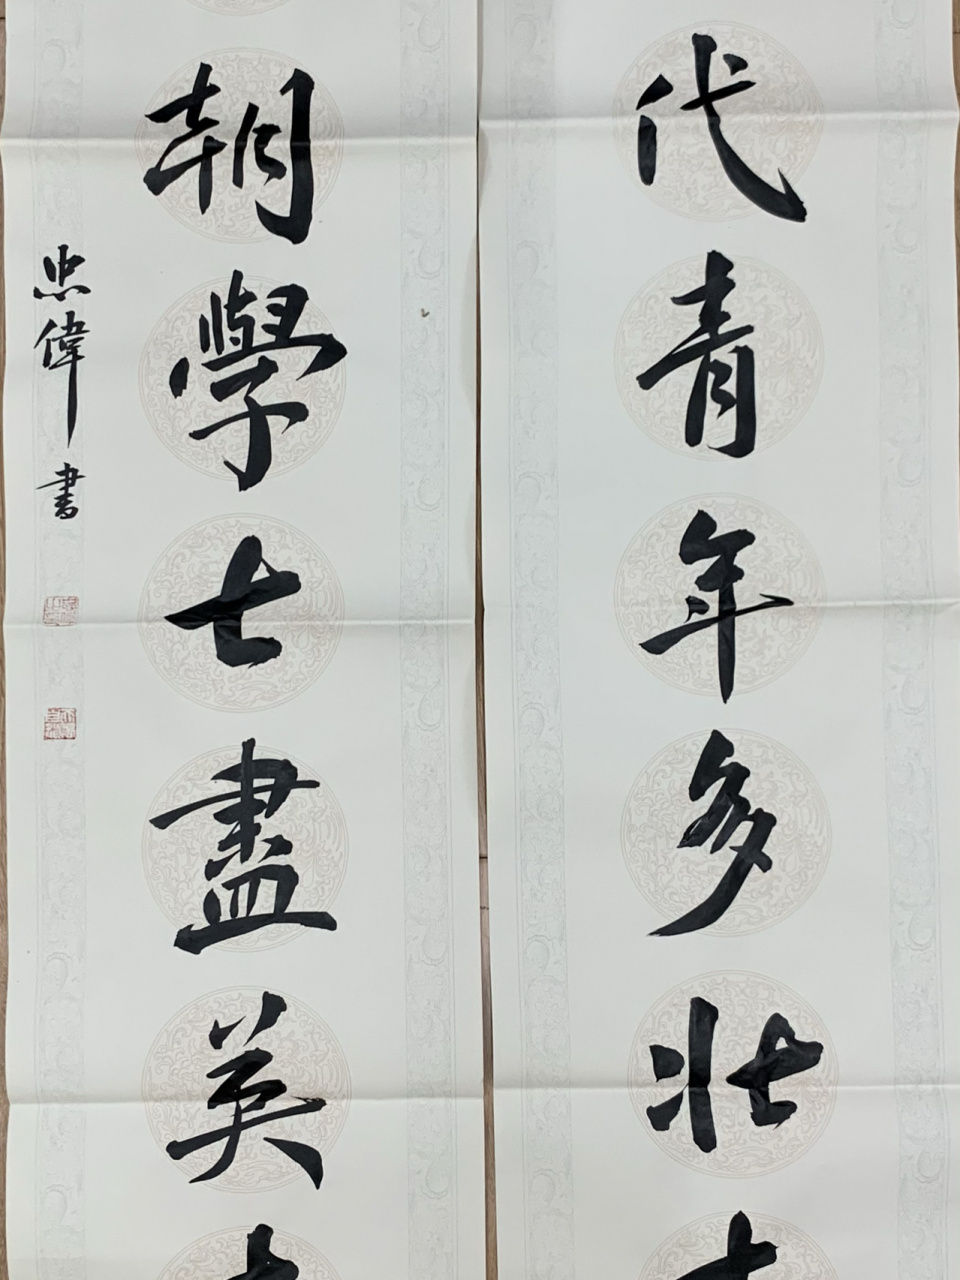 代青年多壯
朝學士盡英
忠偉書